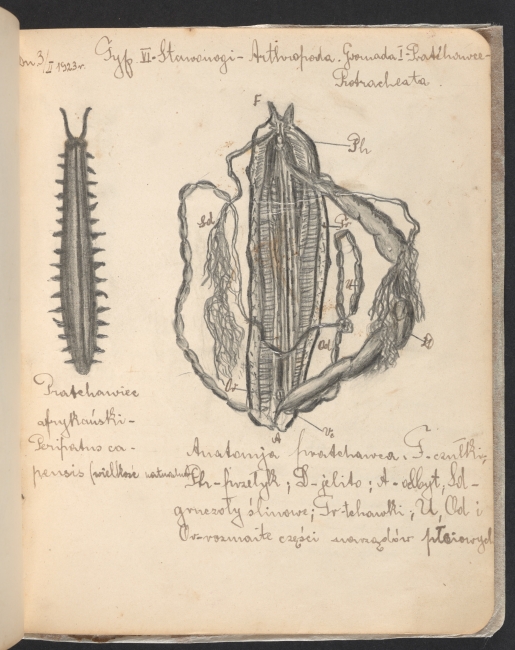 dn. 3/II 1923 r.
Typ VI. Stawonogi - Arthropoda. Gromada I - Pratchawce -
Protracheata.
F
Ph
Sd
Tr
U
Od
D
Or
Ve
A
Pratchawiec
afrykański -
Peripatus ca-
pensis (wielkość naturalna)
Anatomja pratchawca. F - czułki,
Ph - przełyk; D - jelito; A - odbyt, Sd -
gruczoły ślinowe; Tr - tchawki; U, Od i
Or - rozmaite części narządów płciowych